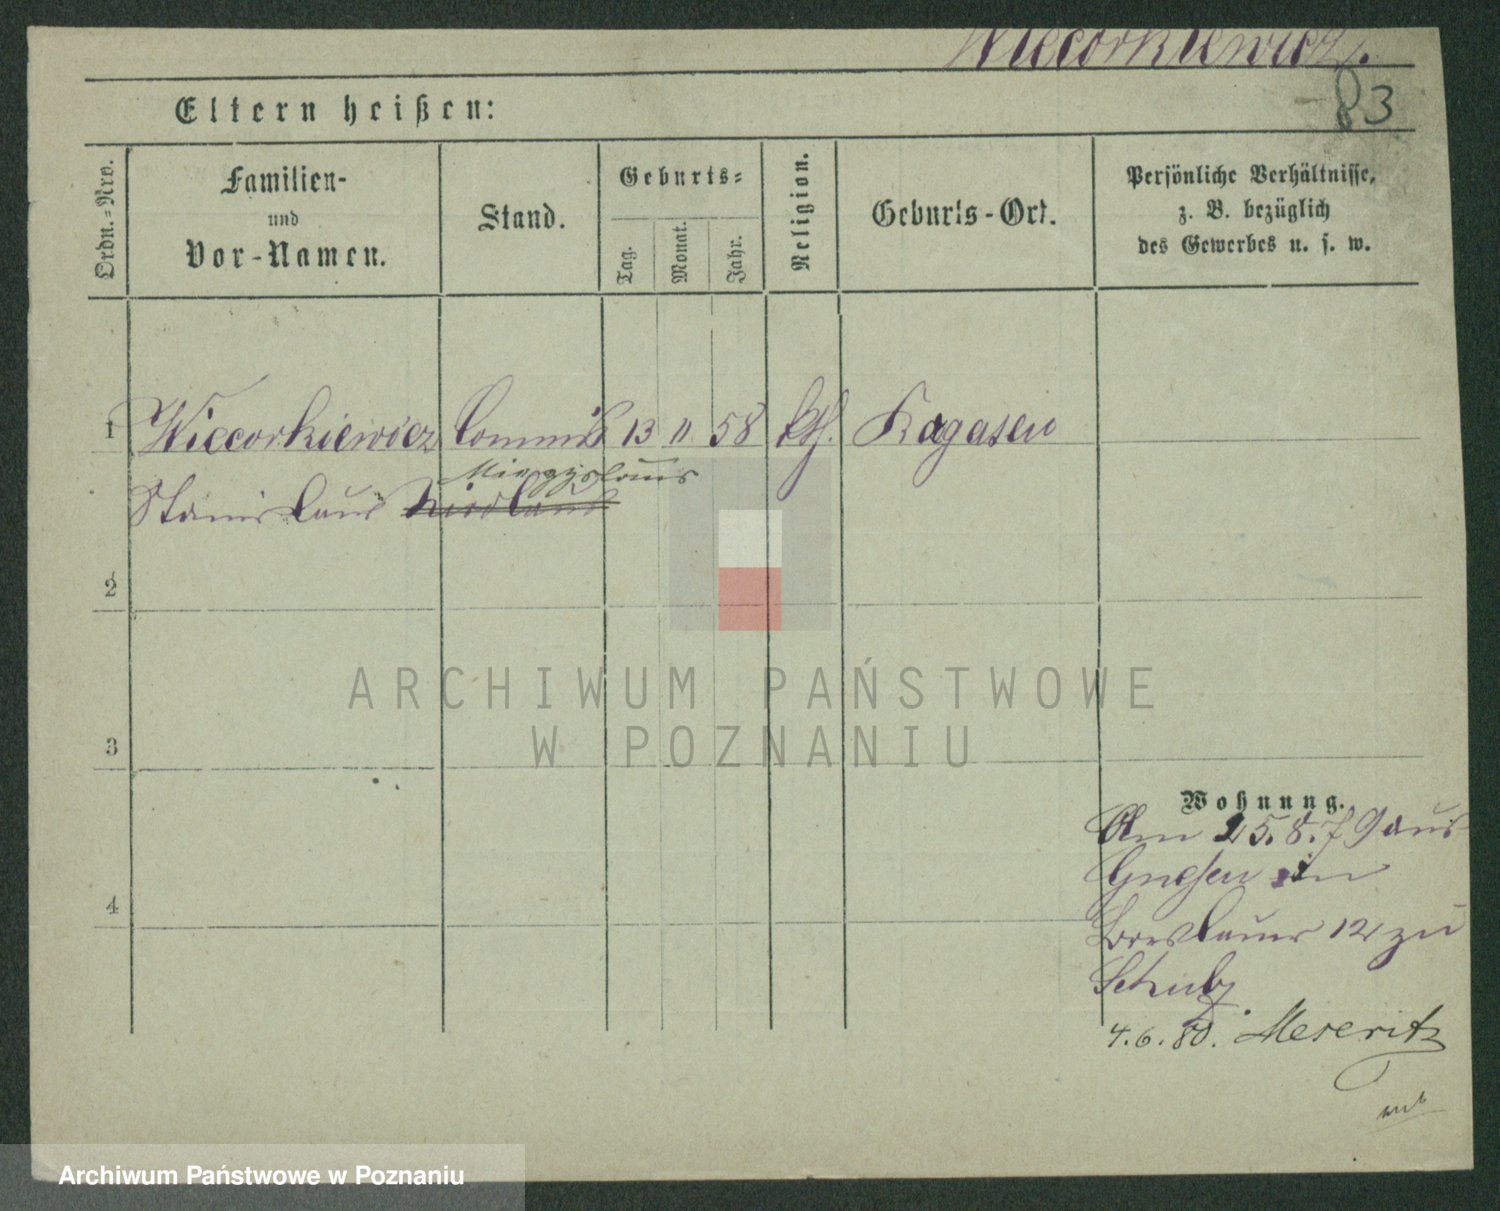 Wiecorkiewicz.
83
Eltern heißen:
Ordn.-Nro.
Familien-
und
Vor-Namen.
Stand.
Geburts-
Tag.
Monat.
Jahr.
Religion.
Geburts-Ort.
Persönliche Verhältnisse,
z. B. bezüglich
des Gewerbes u. s. w.
1 Wiecorkiewicz Commis 13 11 58 kth. Rogasen
Miecyslaus
Stanislaus
2
3
4
Wohnung.
Am 25.8.79 aus
Gnesen in
Breslauer 12 zu
4.6.80. Meseritz
ARCHIWUM PAŃSTWOWE
W POZNANIU
Archiwum Państwowe w Poznaniu